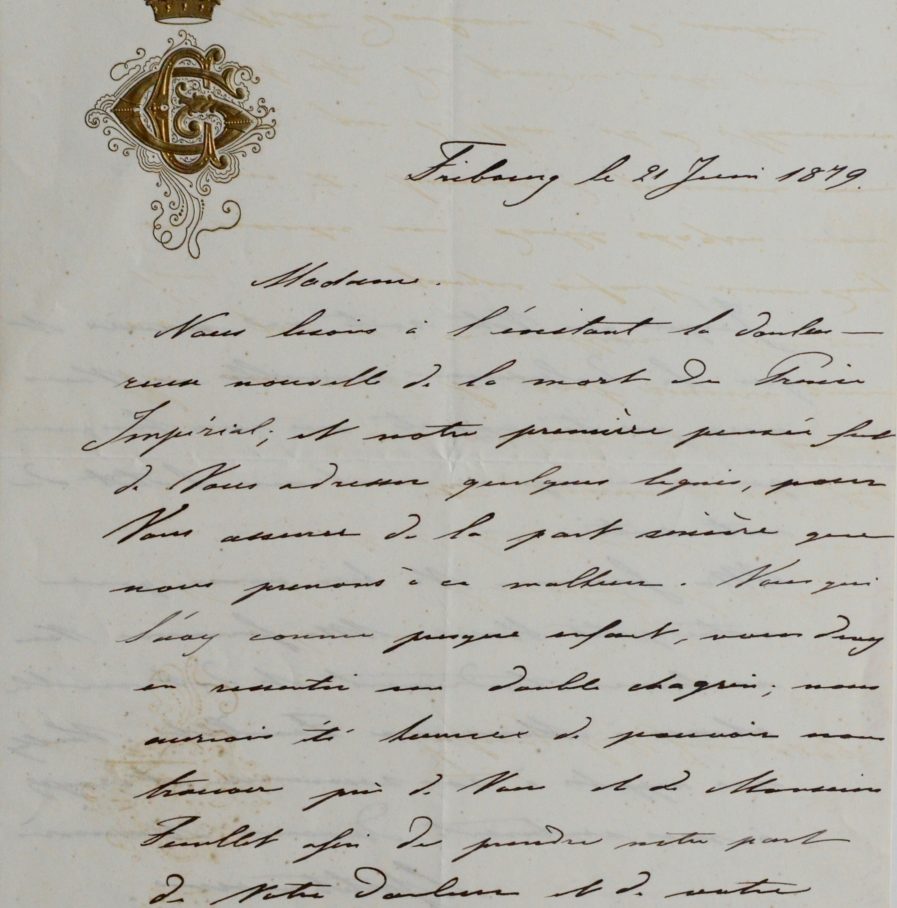 Fribourg le 21 Juin 1879.
Madame.
Nous lisons à l'instant la doulou-
reuse nouvelle de la mort du Prince
Impérial; et notre première pensée fut
de Vous adresser quelques lignes, pour
Vous assurer de la part sincère que
nous prenons à ce malheur. Vous qui
l'avez connu presque enfant, vous devez
en ressentir un double chagrin; nous
aurions été heureux de pouvoir nous
trouver près de Vous et de Monsieur
Feuillet afin de prendre notre part
de Votre douleur et de votre